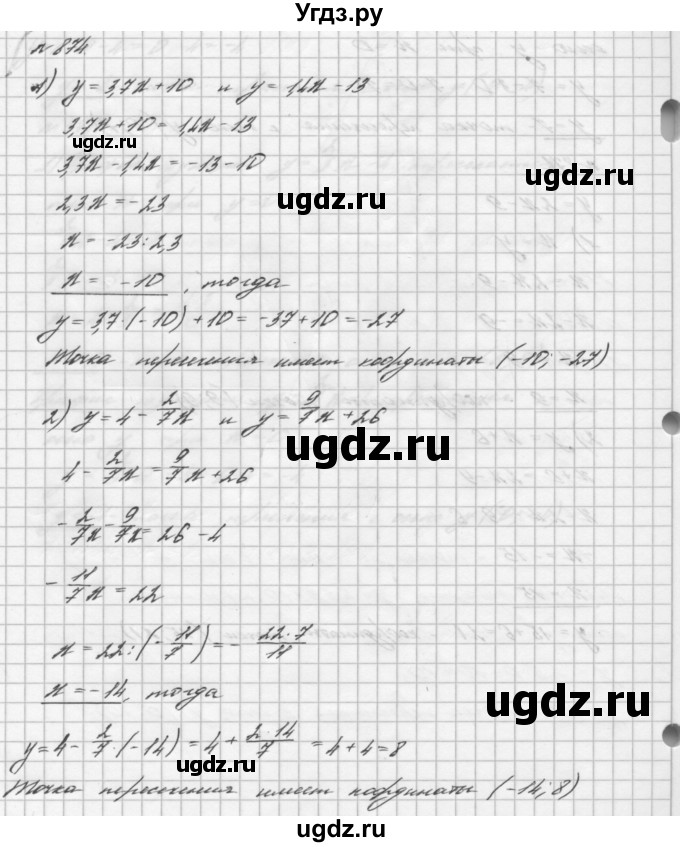 Угдз.ру
№ 874.
1) y = 3,7x + 10 и y = 1,4x - 13
3,7x + 10 = 1,4x - 13
ugdz.ru
3,7x - 1,4x = -13 - 10
2,3x = -23
ugdz.ru
x = -23 : 2,3
x = -10, тогда
y = 3,7·(-10) + 10 = -37 + 10 = -27
Точка пересечения имеет координаты (-10; -27)
2) y = 4 - 2/7x и y = 9/7x + 26
ugdz.ru
4 - 2/7x = 9/7x + 26
-2/7x - 9/7x = 26 - 4
-11/7x = 22
x = 22 : (-11/7) = - 22·7/11
x = -14, тогда
ugdz.ru
y = 4 - 2/7·(-14) = 4 + 2·14/7 = 4 + 4 = 8
ugdz.ru
Точка пересечения имеет координаты (-14; 8)
ugdz.ru